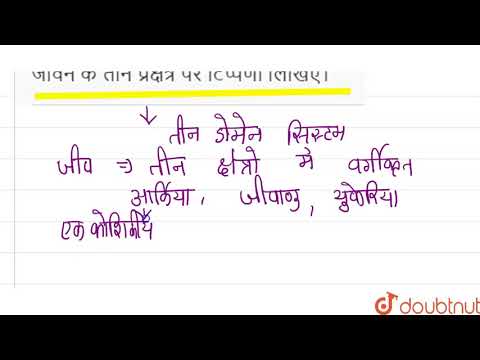 जीवन के तीन प्रक्षेत्र पर टिप्पणी लिखिए।
तीन डोमेन सिस्टम
जीव ⇒ तीन क्षेत्रो मे वर्गीकृत
आर्किया, जीवाणु, युकेरिया
एककोशिकीय
doubtnut